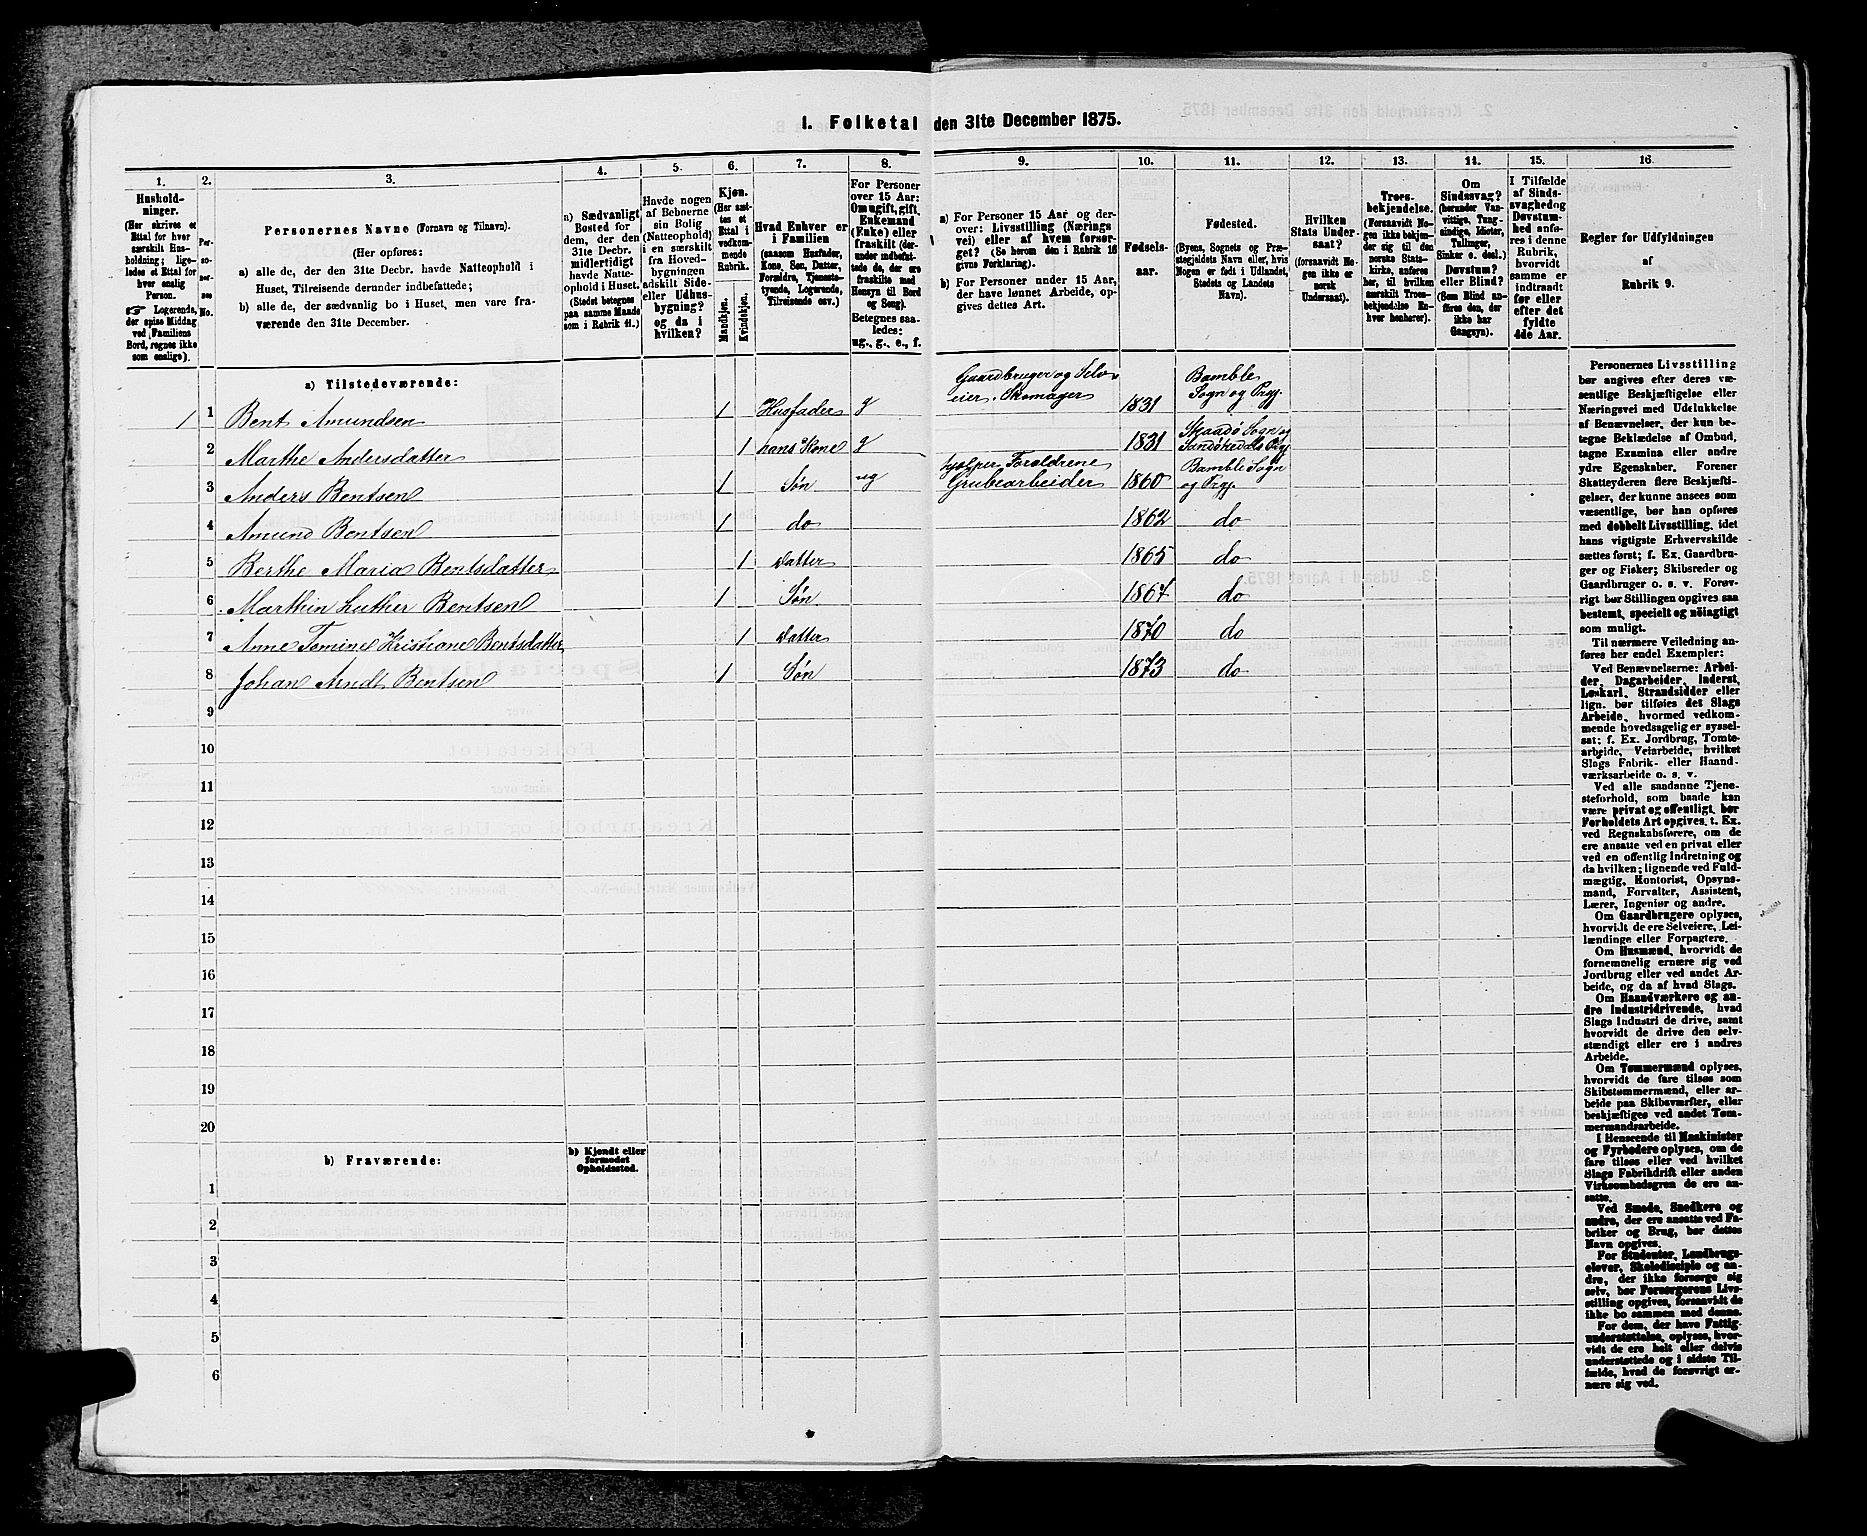 I. Folketal den 31te December 1875.
1.
Hushold-
ninger.
(Her skrives et
Ettal for hver
særskilt Hus-
holdning; lige-
ledes et Ettal for
hver enslig
Person.
☞ Logerende,
der spise Middag
ved Familiens
Bord, regnes ikke
som enslige).
2.
Per-
so-
ner-
nes
No.
3.
Personernes Navne (Fornavn og Tilnavn).
(Her opføres:
a) alle de, der den 31te Decbr. havde Natteophold i
Huset, Tilreisende derunder indbefattede;
b) alle de, der sædvanlig bo i Huset, men vare fra-
værende den 31te December.
4.
a) Sædvanligt
Bosted for
dem, der den
31te Decbr.
midlertidigt
havde Natte-
ophold i Huset.
(Stedet betegnes
paa samme Maade
som i Rubrik 11.)
5.
Havde nogen
af Beboerne
sin Bolig
(Natteophold)
i en særskilt
fra Hoved-
bygningen
adskilt Side-
eller Udhus-
bygning?
og da i
hvilken?
6.
Kjøn.
(Her sæt-
tes et
Ettal i
vedkom-
mende
Rubrik.
Mandkjøn.
Kvindekjøn.
7.
Hvad Enhver er
i Familien
(saasom Husfader,
Kone, Søn, Datter,
Forældre, Tjeneste-
tyende, Logerende,
Tilreisende osv.)
8.
For Personer
over 15 Aar:
Om ugift, gift,
Enkemand
(Enke) eller
fraskilt (der-
under indbefat-
tede de, der ere
fraskilte med
Hensyn til Bord
og Seng).
Betegnes saa-
ledes:
ug., g., e., f.
9.
a) For Personer 15 Aar og der-
over: Livsstilling (Nærings
vei) eller af hvem forsør-
get? (Se herom den i Rubrik 16
givne Forklaring).
b) For Personer under 15 Aar,
der have lønnet Arbeide, op-
gives dettes Art.
10.
Fødsels-
aar.
11.
Fødested.
(Byens, Sognets og Præ-
stegjeldets Navn eller, hvis
Nogen er født i Udlandet,
Stedets og Landets
Navn).
12.
Hvilken
Stats Under-
saat?
(forsaavidt No-
gen ikke er
norsk
Undersaat).
13.
Troes-
bekjendelse.
(Forsaavidt No-
gen ikke bekjen-
der sig til den
norske Stats-
kirke, anføres
her, til hvilken
særskilt Troes-
bekjendelse En-
hver henhører).
14.
Om
Sindssvag?
(herunder Van-
vittige, Tung-
sindige, Idioter,
Tullinger,
Sinker o. desl.)
Døvstum?
eller Blind?
(Som Blind an-
føres den, der
ikke har
Gangsyn).
15.
I Tilfælde
af Sinds-
svaghed og
Døvstum-
hed anfø-
res i denne
Rubrik,
hvorvidt
samme er
indtraadt
før eller
efter det
fyldte
4de Aar.
16.
Regler for Udfyldningen
af
Rubrik 9.
a) Tilstedeværende:
1 1 Bent Amundsen 1 Husfader g Gaardbruger og Selv-
eier. Skomager 1831 Bamble
Sogn og Prgj.
2 Marthe Andersdatter 1 hans Kone g 1831 Skaadø Sogn og
Sandøkedals Prgj
3 Anders Bentsen 1 Søn ug hjælper Forældrene
Grubearbeider 1860 Bamble Sogn
og Prgj.
4 Amund Bentsen 1 do 1862 do
5 Berthe Maria Bentsdatter 1 Datter 1865 do
6 Marthin Luther Bentsen 1 Søn 1867 do
7 Anne Tomine Kristiane Bentsdatter 1 Datter 1870 do
8 Johan Arndt Bentsen 1 Søn 1873 do
9
10
11
12
13
14
15
16
17
18
19
20
b) Fraværende:
b) Kjendt eller
formodet
Opholdssted.
1
2
3
4
5
6
Personernes Livsstilling
bør angives efter deres væ-
sentlige Beskjæftigelse eller
Næringsvei med Udelukkelse
af Benævnelser, der kun be-
tegne Beklædelse af Ombud,
tagne Examina eller andre
ydre Egenskaber. Forener
Skatteyderen flere Beskjæfti-
gelser, der kunne ansees som
væsentlige, bør han opføres
med dobbelt Livsstilling, idet
hans vigtigste Erhvervskilde
sættes først; f. Ex. Gaardbru-
ger og Fisker; Skibsreder og
Gaardbruger o. s. v. Forøv-
rigt bør Stillingen opgives saa
bestemt, specielt og nöiagtigt
som muligt.
Til nærmere Veiledning an-
føres her endel Exempler:
Ved Benævnelserne: Arbei-
der, Dagarbeider, Inderst,
Løskarl, Strandsidder eller
lign. bør tilføies det Slags
Arbeide, hvormed vedkom-
mende hovedsagelig er syssel-
sat; f. Ex. Jordbrug, Tomte-
arbeide, Veiarbeide, hvilket
Slags Fabrik- eller Haand-
værksarbeide o. s. v.
Ved alle saadanne Tjene-
steforhold, som baade kan
være privat og offentligt, bør
Forholdets Art opgives, t. Ex.
ved Regnskabsførere, om de
ere ansatte ved en privat eller
ved en offentlig Indretning og
da hvilken; lignende ved Fuld-
mægtig, Kontorist, Opsyns-
mand, Forvalter, Assistent,
Lærer, Ingeniør og andre.
Om Gaardbrugere oplyses,
hvorvidt de ere Selveiere, Lei-
lændinge eller Forpagtere.
Om Husmænd, hvorvidt de
fornemmelig ernære sig ved
Jordbrug eller ved andet Ar-
beide, og da af hvad Slags.
Om Haandværkere og an-
dre Industridrivende, hvad
Slags Industri de drive, samt
hvorvidt de drive den selv-
stændigt eller ere i andres
Arbeide.
Om Tømmermænd oplyses,
hvorvidt de fare tilsøs som
Skibstømmermænd, eller ar-
beide paa Skibsværfter, eller
beskjæftiges ved andet Tøm-
mermandsarbeide.
I Henseende til Maskinister
og Fyrbødere oplyses, om de
fare tilsøs eller ved hvilket
Slags Fabrikdrift eller anden
Virksomhedsgren de ere an-
satte.
Ved Smede, Snedkere og
andre, der ere ansatte ved Fa-
briker og Brug, bør dettes
Navn opgives.
For Studenter, Landbrugs-
elever, Skoledisciple og an-
dre, der ikke forsørge sig
selv, bør Forsørgerens Livs-
stilling opgives, forsaavidt de
ikke bo sammen med denne.
For dem, der have Fattig-
understøttelse, oplyses, hvor-
vidt de ere helt eller delvis
understøttede og i sidste Til-
fælde, hvad de forøvrigt er-
nære sig ved.